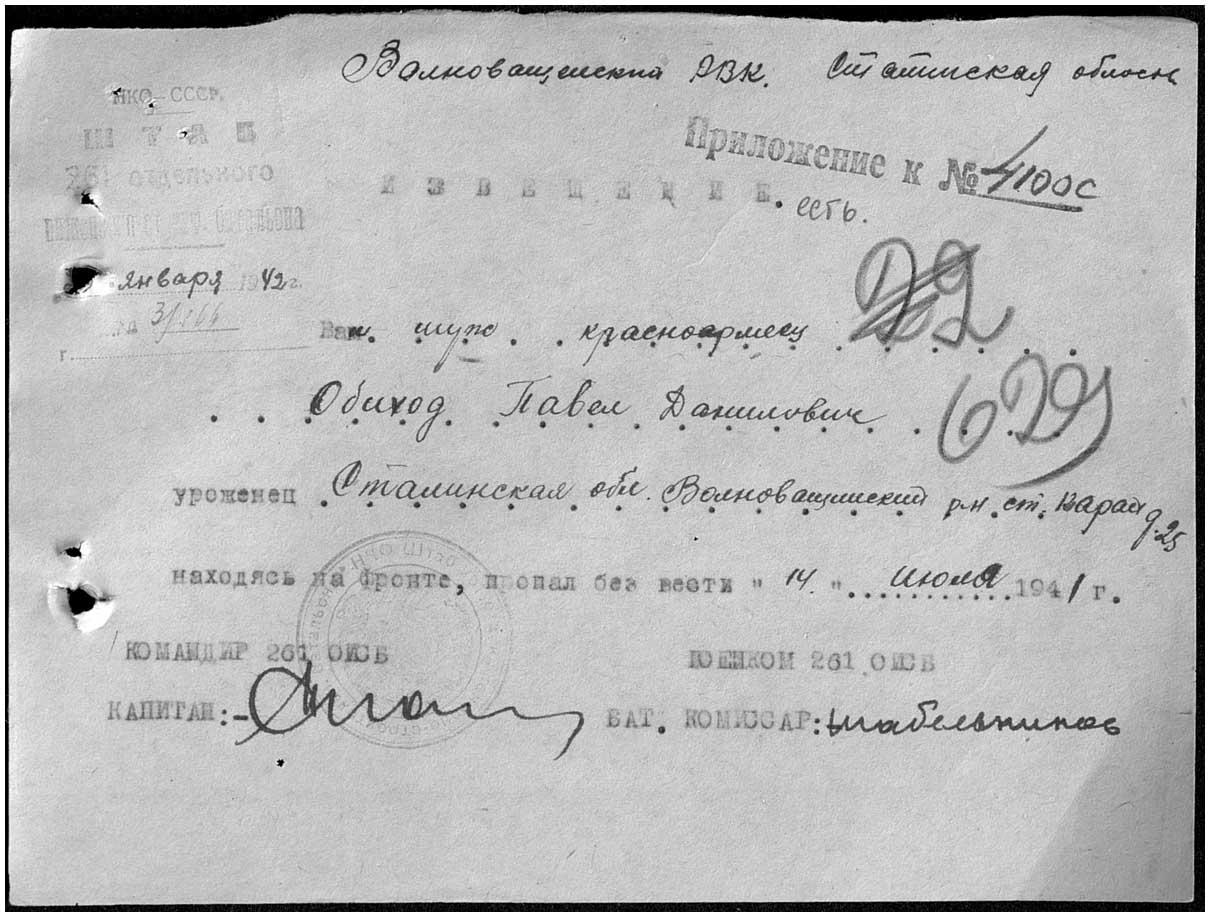 Волновашский РВК. Сталинская область
НКО–СССР.
ШТАБ
261 отдельного
батальона
января 1942 г.
Приложение к № 4100с
ИЗВЕЩЕНИЕ. есть.
Ваш муж красноармеец
Обиход Павел Данилович
уроженец Сталинская обл. Волновашский р-н. ст. Каран д. 25
находясь на фронте, пропал без вести "14" июля 1941 г.
КОМАНДИР 261 ОИСБ
ВОЕНКОМ 261 ОИСБ
КАПИТАН:–
БАТ. КОМИССАР: Шабельников